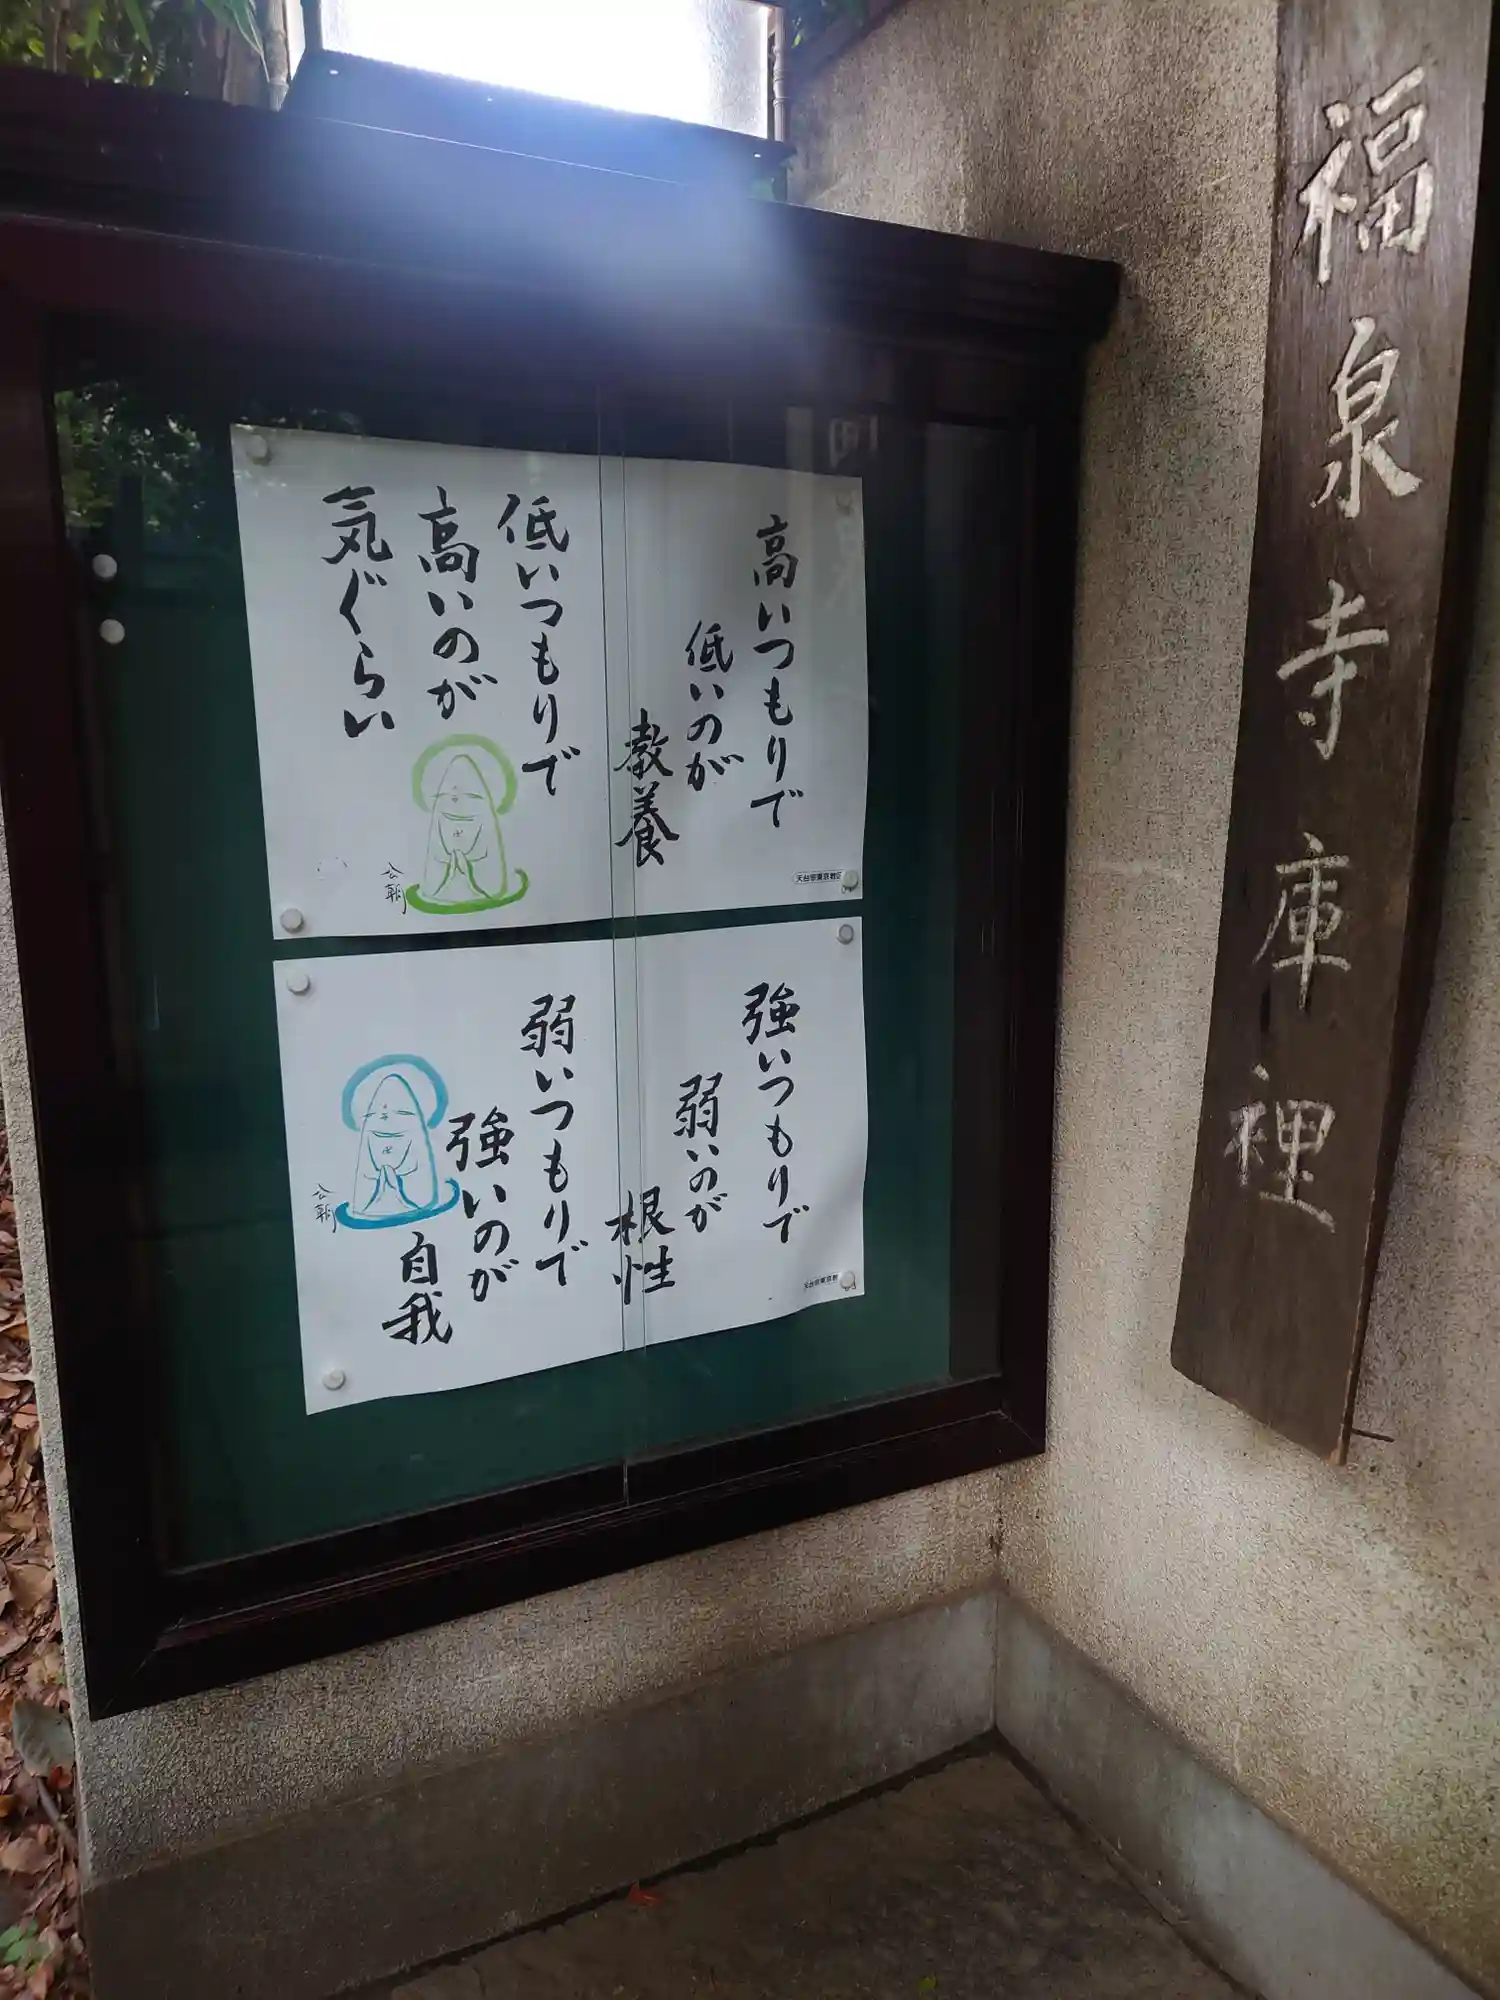 福泉寺庫裡
高いつもりで
低いのが
教養
低いつもりで
高いのが
気ぐらい
公朝
天台宗東京教区
強いつもりで
弱いのが
根性
弱いつもりで
強いのが
自我
公朝
天台宗東京教